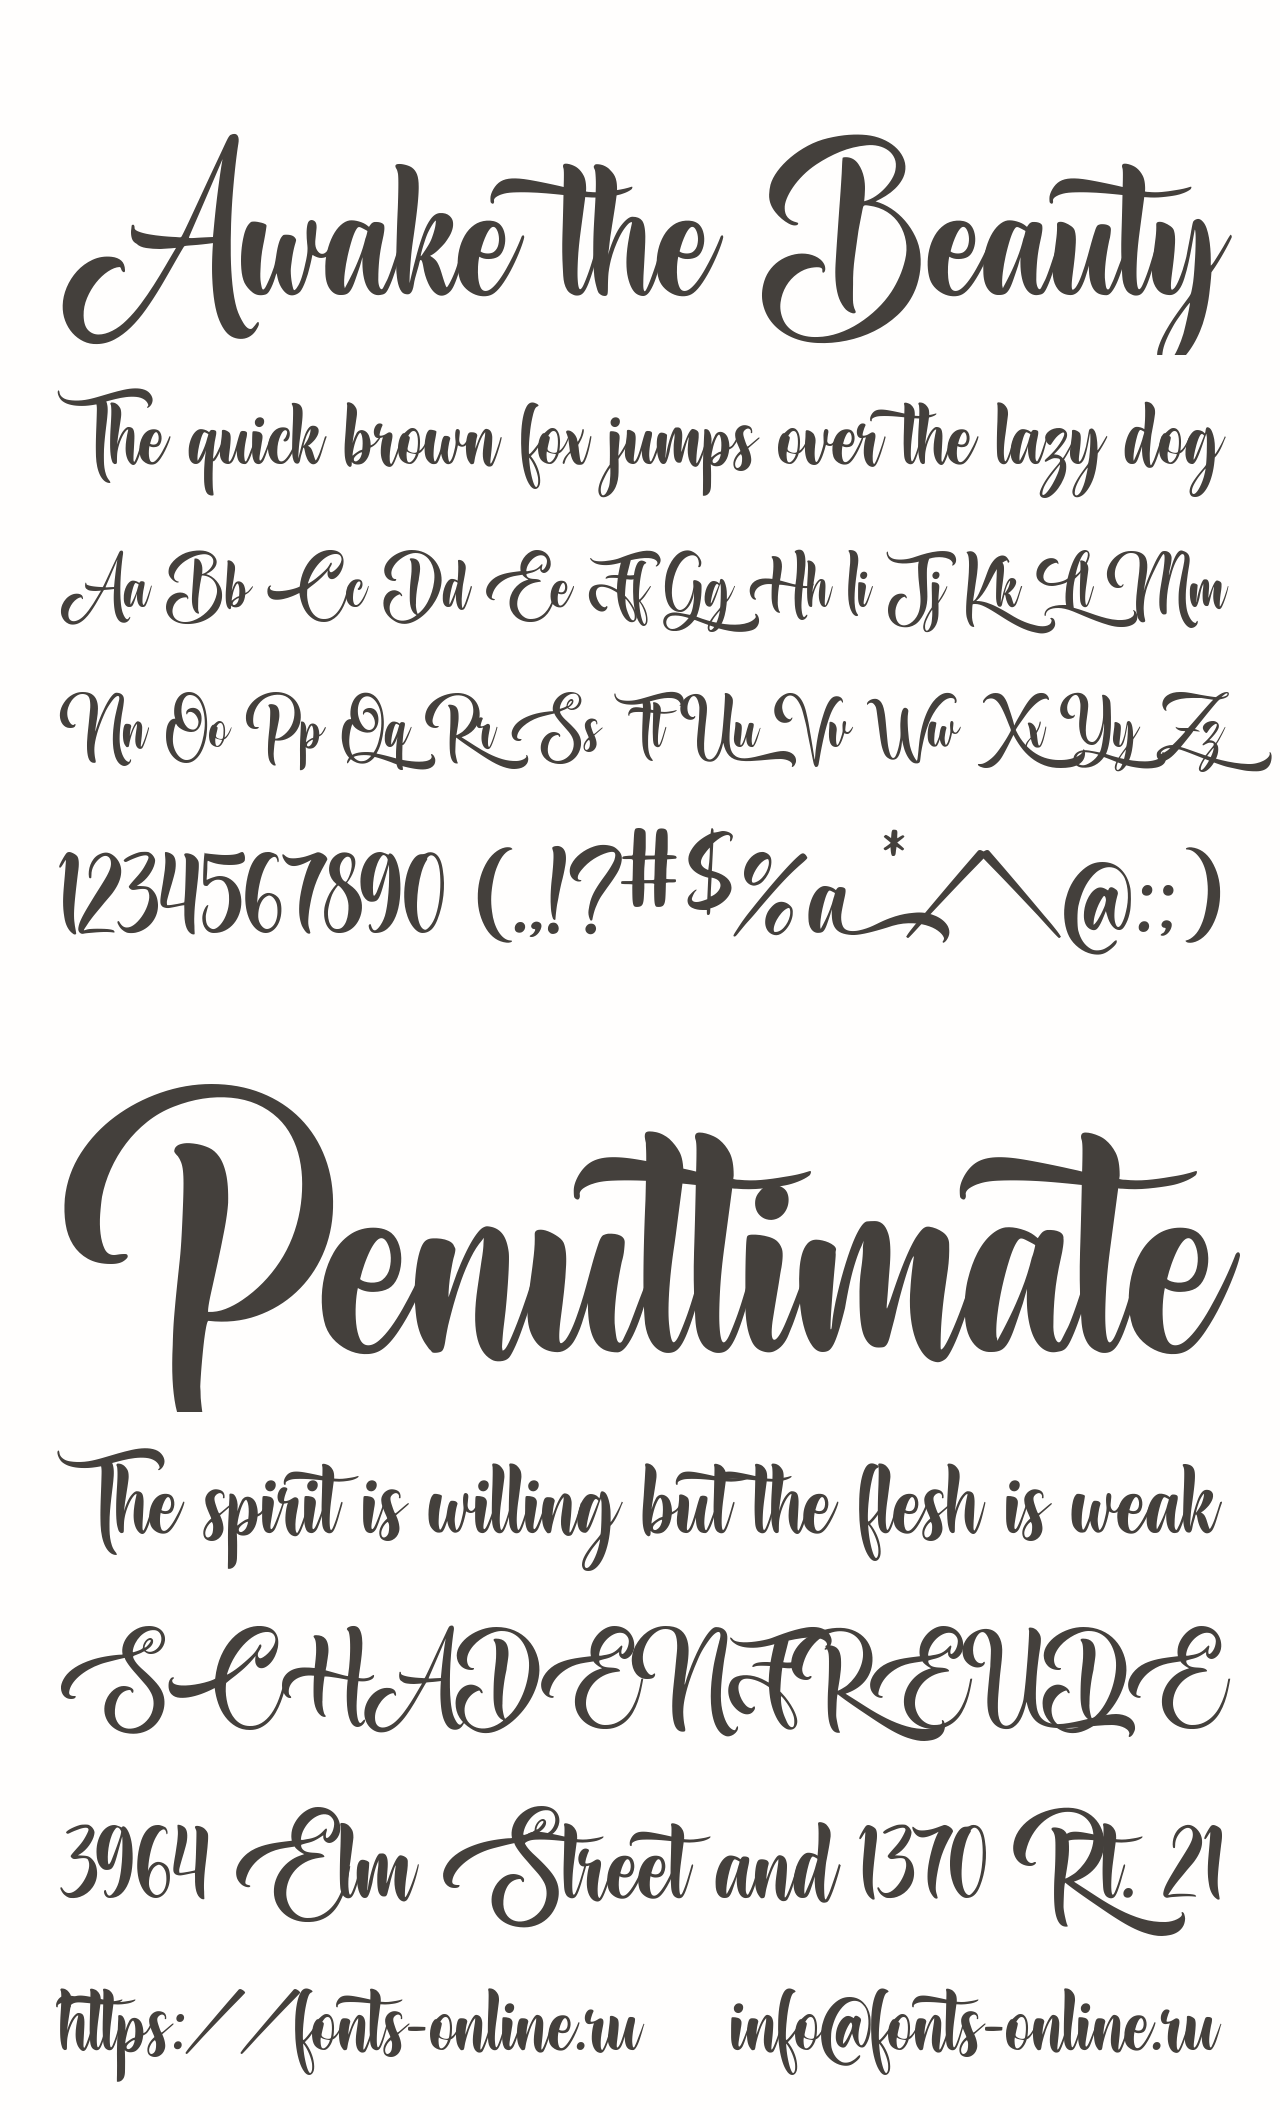 Awake the Beauty
The quick brown fox jumps over the lazy dog
Aa Bb Cc Dd Ee Ff Gg Hh Ii Jj Kk Ll Mm
Nn Oo Pp Qq Rr Ss Tt Uu Vv Ww Xx Yy Zz
1234567890 (.,!?#$%a*^@:;)
Penultimate
The spirit is willing but the flesh is weak
SCHADENFREUDE
3964 Elm Street and 1370 Rt. 21
https://fonts-online.ru info@fonts-online.ru